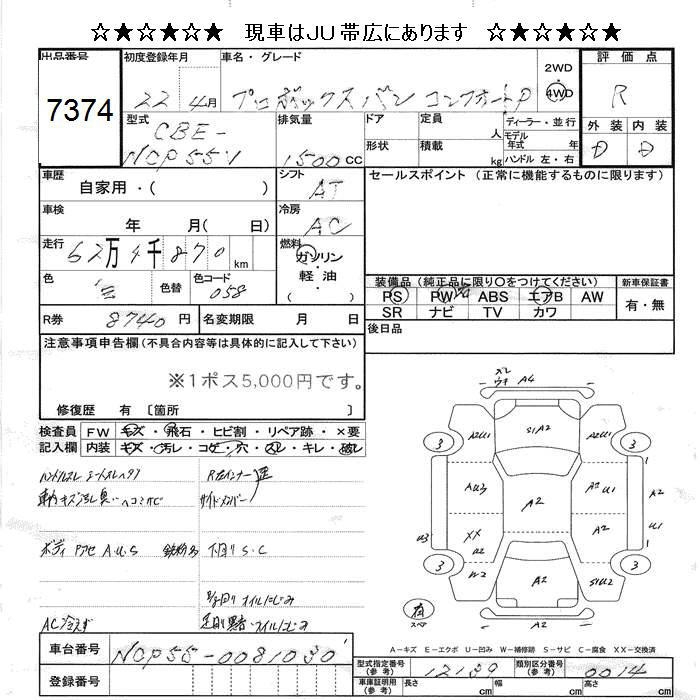 ☆★☆★☆★ 現車はJU帯広にあります ☆★☆★☆★
出品番号
7374
初度登録年月
22 年 4月
車名・グレード
プロボックスバン コンフォートP
2WD
4WD
評価点
R
外装 内装
D D
型式
CBE-
NCP55V
排気量
1500cc
ドア
形状
定員 人
積載 kg
ディーラー・並行
モデル年式 年
ハンドル 左・右
車歴
自家用・( )
シフト
AT
セールスポイント (正常に機能するものに限ります)
車検
年 月( 日)
冷房
AC
走行
62万4千870km
燃料
ガソリン
・
軽油
色
色替
色コード
058
装備品(純正品に限り○をつけてください)
PS PW ABS エアB AW
SR ナビ TV カワ
新車保証書
有・無
R券 8740円
名変期限 月 日
後日品
注意事項申告欄(不具合内容等は具体的に記入して下さい)
※1ポス5,000円です。
修復歴 有〔箇所 〕
検査員
記入欄
FW キズ・飛石・ヒビ割・リペア跡・×要
内装 キズ・汚レ・コゲ・穴・スレ・キレ・破レ
ハンドルスレ シートスレヘタリ
R左インナー
サイドメンバー
ボディ アセ A.U.S 鉄粉
下回りS.C
オイルにじみ
AC冷えず
オイルにじみ
A4
S1 A2
A2U1
A2U1
3
3
AU3
A2
A2
U1
A2
U1
U3
XX
U2
A2
A2
W2
S1U2
3
3
A2
A2
有
スペア
A-キズ E-エクボ U-凹み W-補修跡 S-サビ C-腐食 XX-交換済
車台番号
NCP55-0081030
登録番号
型式指定番号(参考)
12139
類別区分番号(参考)
0014
車庫証明用(参考)
長さ cm
幅 cm
高さ cm